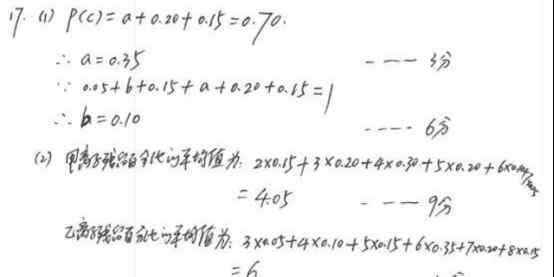 17. (1) P(C) = a + 0.20 + 0.15 = 0.70.
∴ a = 0.35 ---- 3分
∵ 0.05 + b + 0.15 + a + 0.20 + 0.15 = 1
∴ b = 0.10 ---- 6分
(2) 甲离子残留百分比的平均值为: 2×0.15 + 3×0.20 + 4×0.30 + 5×0.20 + 6×
= 4.05 ---- 9分
乙离子残留百分比的平均值为: 3×0.05 + 4×0.10 + 5×0.15 + 6×0.35 + 7×0.20 + 8×0.15
= 6